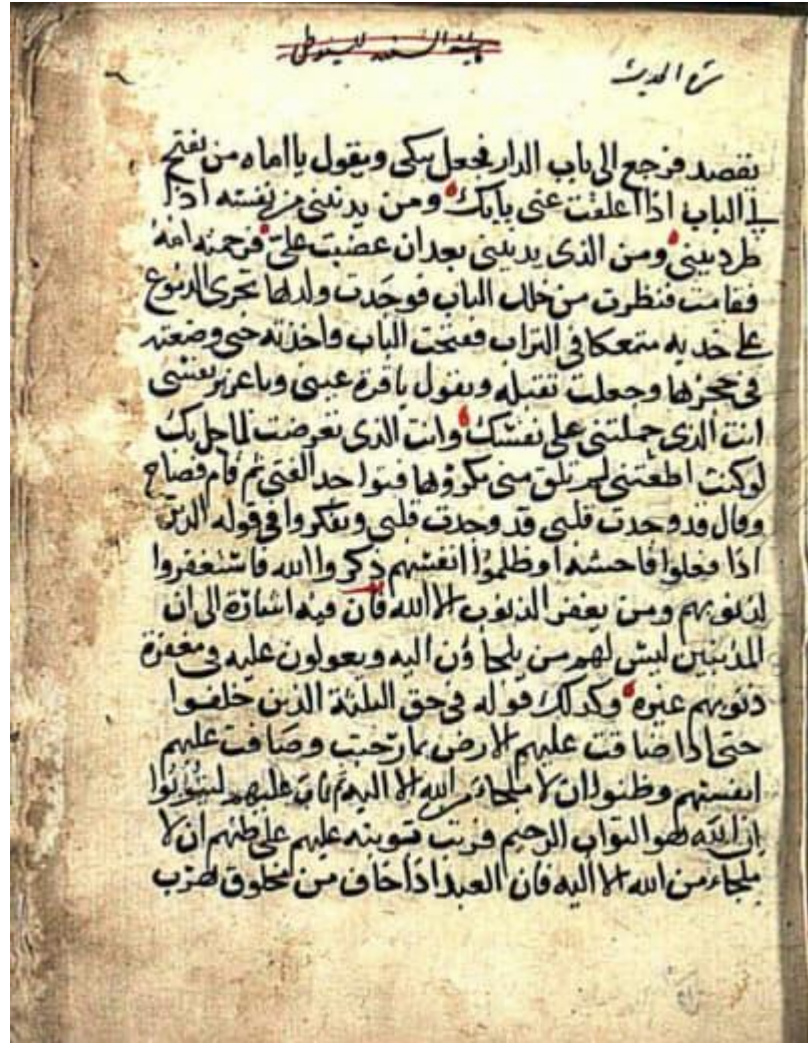 شرح الحديث
يقصد فرجع الى باب الدار فجعل يبكى ويقول يا اماه من يفتح
لى الباب اذا اغلقت عنى بابك ومن يدنينى من نفسه اذا
طردتينى ومن الذى يدنينى بعد ان غضبت على فرحمته امه
فقامت فنظرت من خلل الباب فوجدت ولدها تجرى الدموع
على خديه متمعكا فى التراب ففتحت الباب واخذته حتى وضعته
فى حجرها وجعلت تقبله وتقول يا قرة عينى ويا عزيز نفسى
انت الذى حملتنى على نفسك وانت الذى تعرضت لما حل بك
لو كنت اطعتنى لم تلق منى مكروها فتواجد الفتى ثم قام فصاح
وقال قد وجدت قلبى قد وجدت قلبى وتفكروا فى قوله الذين
اذا فعلوا فاحشه او ظلموا انفسهم ذكروا الله فاستغفروا
لذنوبهم ومن يغفر الذنوب الا الله فان فيه اشارة الى ان
المذنبين ليس لهم من يلجاؤن اليه ويعولون عليه فى مغفرة
ذنوبهم غيره وكذلك قوله فى حق الثلثة الذين خلفوا
حتى اذا ضاقت عليهم الارض بما رحبت وضاقت عليهم
انفسهم وظنوا ان لا ملجاء من الله الا اليه ثم تاب عليهم ليتوبوا
ان الله هو التواب الرحيم فرتب توبته عليهم على ظنهم ان لا
ملجاء من الله الا اليه فان العبد اذا خاف من مخلوق هرب